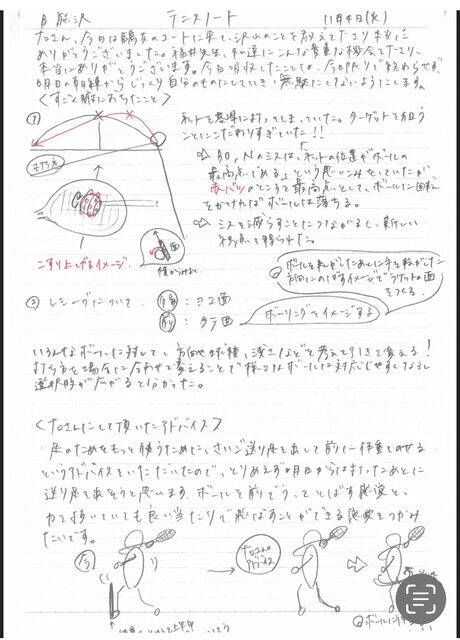 B 熊沢 テニスノート 11月4日(火)
大さん、今日は鵠なのコートに来て、沢山のことを教えて下さり本当に
ありがとうございました。福井先生、私達にこんな貴重な機会を下さり、
本当にありがとうございます。今日吸収したことは、今日限りで終わらせず、
明日の朝練からじっくり自分のものにしていき、無駄にしないようにします。
<すごく腑におちたこと>
① ネットを基準に打ってしまっていた。ターゲットを狙う
ことにこだわりすぎていた!!
打ち方
→ 「ネットの位置がボールの
最高点である」という思いこみをしていたが、
赤バツのところを最高点として、ボールに回転
をかければボールは落ちる。
→ ミスを減らすことにつながるし、新しい
視点を得られた。
こすり上げるイメージ
面
② レシーブについて
後:ヨコ面
前:タテ面
ボールを転がしたあとに手を転がした
方向にのばすイメージでラケットの面
をつくる。
ボーリングをイメージする
いろんなボールに対して、方向や球種、浅さなどを考えて引きを変える!
打ち方を場合に合わせて変えることで様々なボールに対応しやすくなるし
選択肢が広がると分かった。
<大さんにして頂いたアドバイス>
足のためをもっと使うために、さいご送り足を出して前に体重をのせる
というアドバイスをいただいたので、とりあえず明日からは打ったあとに
送り足を出そうと思います。ボールを前でうってとばす感覚と、
力を抜いていても良い当たりで飛ばすことができる感覚をつかみ
たいです。
今
大さんの
アドバイス